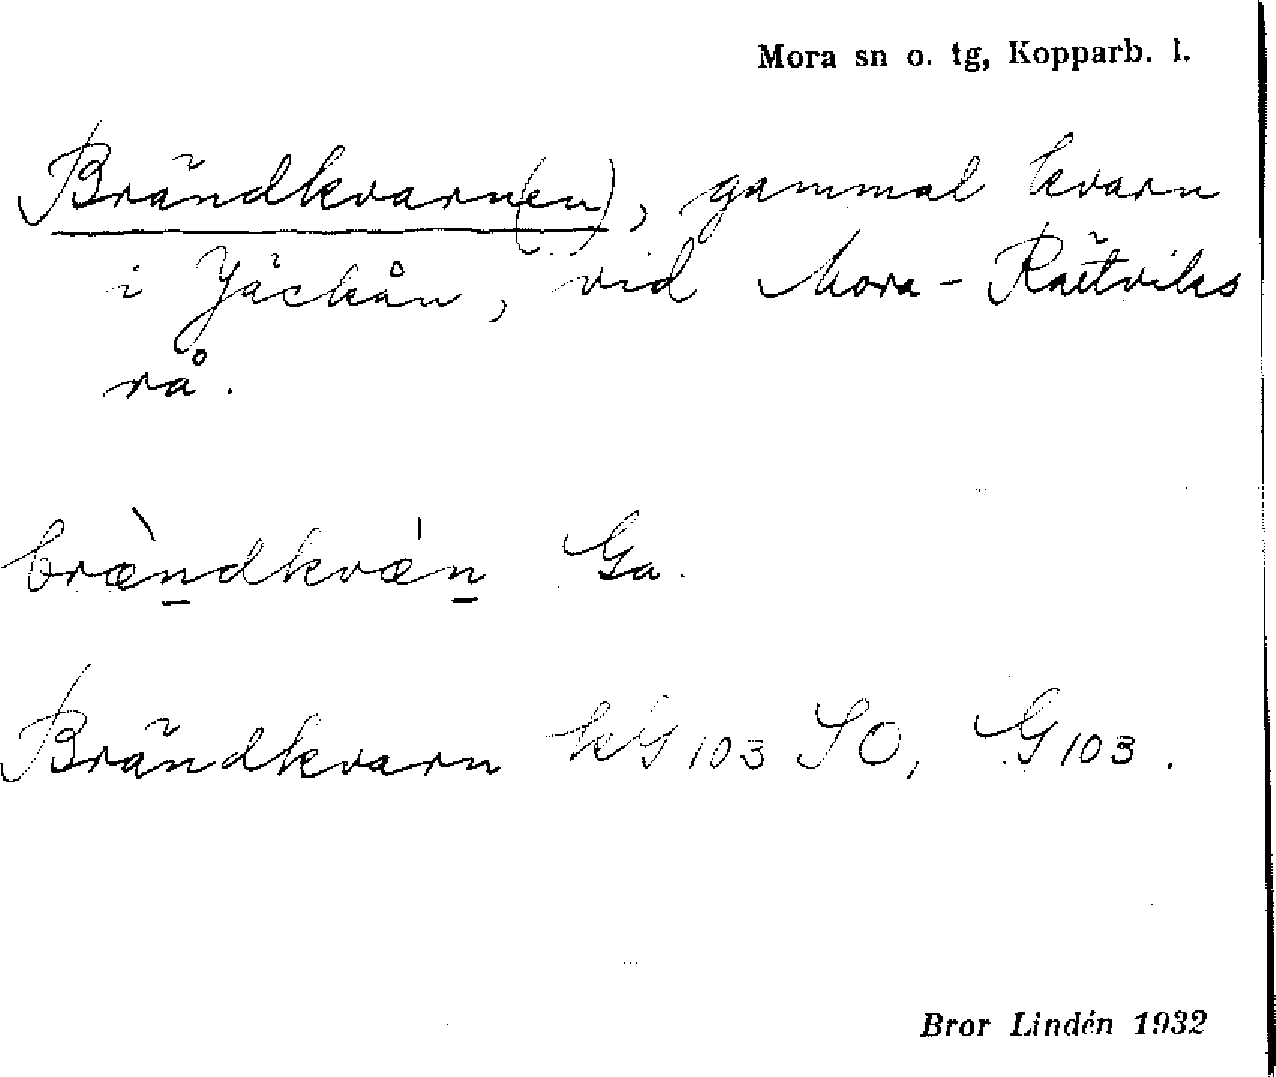 Mora sn o. tg, Kopparb. l.
Brändkvarn(en), gammal kvarn
i Jäckån, vid Mora-Rättviks
rå.
brændkvæn Ga.
Brändkvarn kG103 SO, G103.
Bror Lindén 1932